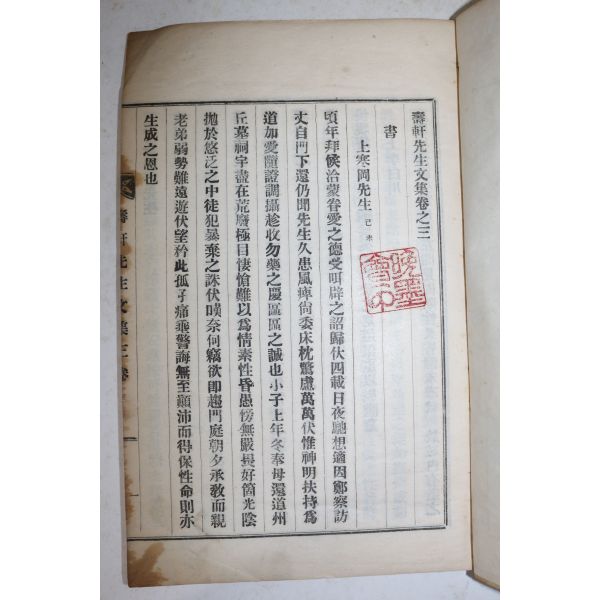 壽軒先生文集卷之三
書
上寒岡先生 己未
頃年拜候洽蒙眷愛之德受咡辟之詔歸伏四載日夜馳想適因鄭察訪
丈自門下還仍聞先生久患風痺尙委床枕驚慮萬萬伏惟神明扶持爲
道加愛隨證調攝趁收勿藥之慶區區之誠也小子上年冬奉母還道州
丘墓祠宇盡在荒廢極目悽愴難以爲情素性昏愚傍無嚴畏好箇光陰
拋於悠泛之中徒犯暴棄之誅伏嘆奈何竊欲卽趨門庭朝夕承敎而親
老弟弱勢難遠遊伏望矜此孤子痛垂警誨無至顚沛而得保性命則亦
生成之恩也
壽軒先生文集三卷